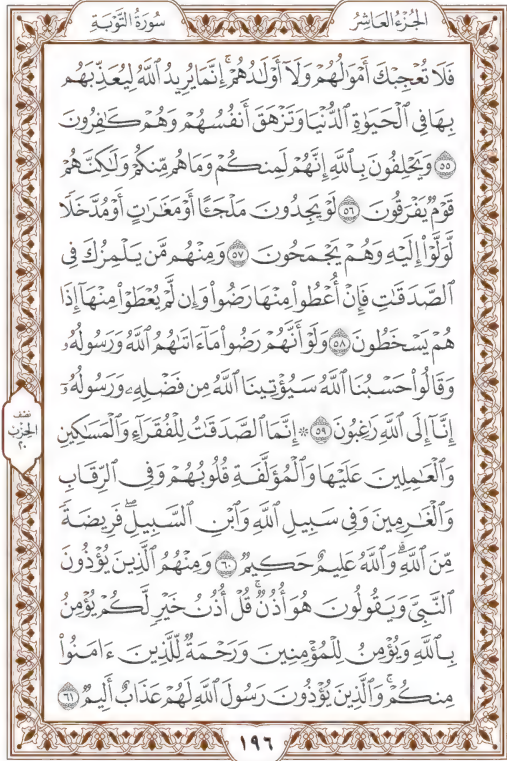 سُورَةُ التَّوْبَةِ
الجُزْءُ العَاشِرُ
فَلَا تُعْجِبْكَ أَمْوَٰلُهُمْ وَلَآ أَوْلَـٰدُهُمْ ۚ إِنَّمَا يُرِيدُ ٱللَّهُ لِيُعَذِّبَهُم
بِهَا فِى ٱلْحَيَوٰةِ ٱلدُّنْيَا وَتَزْهَقَ أَنفُسُهُمْ وَهُمْ كَـٰفِرُونَ
٥٥ وَيَحْلِفُونَ بِٱللَّهِ إِنَّهُمْ لَمِنكُمْ وَمَا هُم مِّنكُمْ وَلَـٰكِنَّهُمْ
قَوْمٌ يَفْرَقُونَ ٥٦ لَوْ يَجِدُونَ مَلْجَـًٔا أَوْ مَغَـٰرَٰتٍ أَوْ مُدَّخَلًا
لَّوَلَّوْا۟ إِلَيْهِ وَهُمْ يَجْمَحُونَ ٥٧ وَمِنْهُم مَّن يَلْمِزُكَ فِى
ٱلصَّدَقَـٰتِ فَإِنْ أُعْطُوا۟ مِنْهَا رَضُوا۟ وَإِن لَّمْ يُعْطَوْا۟ مِنْهَآ إِذَا
هُمْ يَسْخَطُونَ ٥٨ وَلَوْ أَنَّهُمْ رَضُوا۟ مَآ ءَاتَىٰهُمُ ٱللَّهُ وَرَسُولُهُۥ
وَقَالُوا۟ حَسْبُنَا ٱللَّهُ سَيُؤْتِينَا ٱللَّهُ مِن فَضْلِهِۦ وَرَسُولُهُۥٓ
إِنَّآ إِلَى ٱللَّهِ رَٰغِبُونَ ٥٩ ۞ إِنَّمَا ٱلصَّدَقَـٰتُ لِلْفُقَرَآءِ وَٱلْمَسَـٰكِينِ
نصف
الحِزْب
٢٠
وَٱلْعَـٰمِلِينَ عَلَيْهَا وَٱلْمُؤَلَّفَةِ قُلُوبُهُمْ وَفِى ٱلرِّقَابِ
وَٱلْغَـٰرِمِينَ وَفِى سَبِيلِ ٱللَّهِ وَٱبْنِ ٱلسَّبِيلِ ۖ فَرِيضَةً
مِّنَ ٱللَّهِ ۗ وَٱللَّهُ عَلِيمٌ حَكِيمٌ ٦٠ وَمِنْهُمُ ٱلَّذِينَ يُؤْذُونَ
ٱلنَّبِىَّ وَيَقُولُونَ هُوَ أُذُنٌ ۚ قُلْ أُذُنُ خَيْرٍ لَّكُمْ يُؤْمِنُ
بِٱللَّهِ وَيُؤْمِنُ لِلْمُؤْمِنِينَ وَرَحْمَةٌ لِّلَّذِينَ ءَامَنُوا۟
مِنكُمْ ۚ وَٱلَّذِينَ يُؤْذُونَ رَسُولَ ٱللَّهِ لَهُمْ عَذَابٌ أَلِيمٌ ٦١
١٩٦